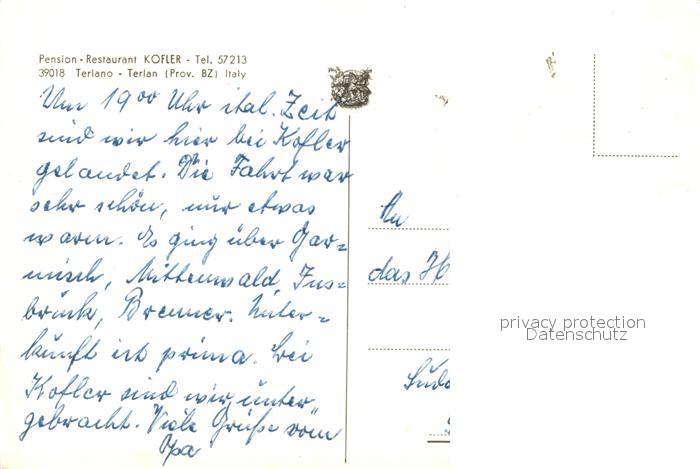 Pension - Restaurant KOFLER - Tel. 57213
39018 Terlano - Terlan (Prov. BZ) Italy
Um 19ºº Uhr ital. Zeit
sind wir hier bei Kofler
gelandet. Die Fahrt war
sehr schön, nur etwas
warm. Es ging über Gar=
misch, Mittenwald, Ins=
brück, Brenner. Unter=
kunft ist prima. Bei
Kofler sind wir „unter
gebracht." Viele Grüße vom
Opa
An
das H
privacy protection
Datenschutz